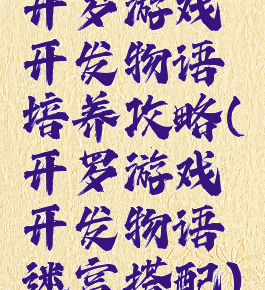 开罗游戏
开发物语
培养攻略(
开罗游戏
开发物语
迷宫搭配)